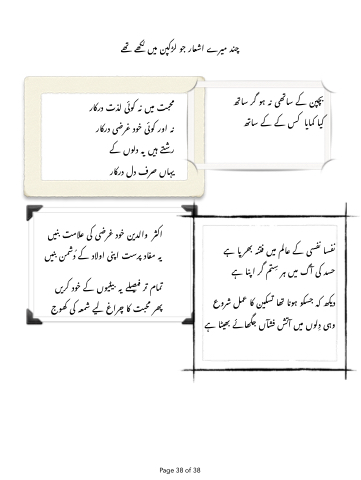 چند میرے اشعار جو لڑکپن میں لکھے تھے
بچپن کے ساتھی نہ ہو گر ساتھ
کیا کمایا کس کے کے ساتھ
محبت میں نہ کوئی لذت درکار
نہ اور کوئی خود غرضی درکار
رشتے ہیں یہ دلوں کے
یہاں صرف دل درکار
اکثر والدین خود غرضی کی علامت بنیں
یہ مفاد پرست اپنی اولاد کے دشمن بنیں
تمام تر فیصلے یہ بیٹیوں کے خود کریں
پھر محبت کا چراغ لیے شمعہ کی کھوج
نفسا نفسی کے عالم میں فتنہ بھرپا ہے
حسد کی آگ میں ہر ستم گر اپنا ہے
دیکھ کہ جسکو ہونا تھا تسکین کا عمل شروع
وہی دلوں میں آتش فشاں جگائے بیٹھا ہے
Page 38 of 38